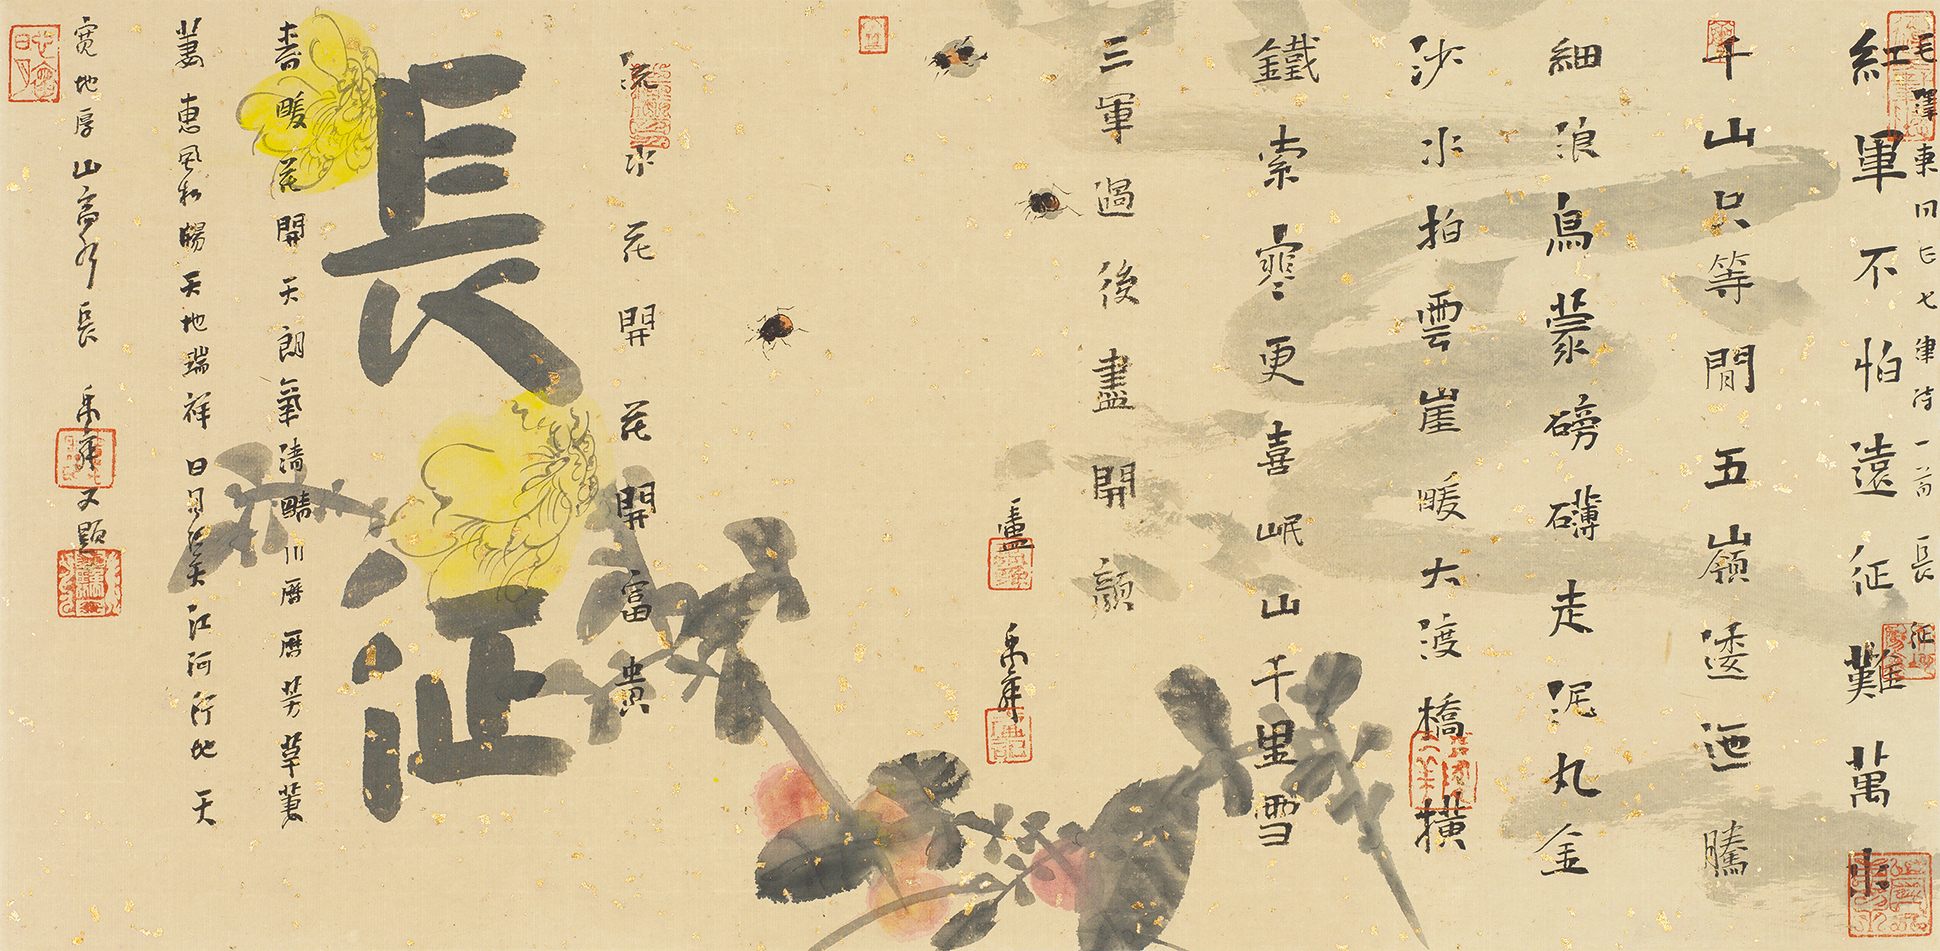 毛澤東同志七律詩一首 長征
紅軍不怕遠征難萬水
千山只等閒五嶺逶迤騰
細浪烏蒙磅礴走泥丸金
沙水拍雲崖暖大渡橋橫
鐵索寒更喜岷山千里雪
三軍過後盡開顏
盧禹舜
流水花開花開富貴
長征
春暖花開天朗氣清疇川曆曆芳草萋
萋惠風和暢天地瑞祥日月經天江河行地天
寬地厚山高水長 禹舜又題